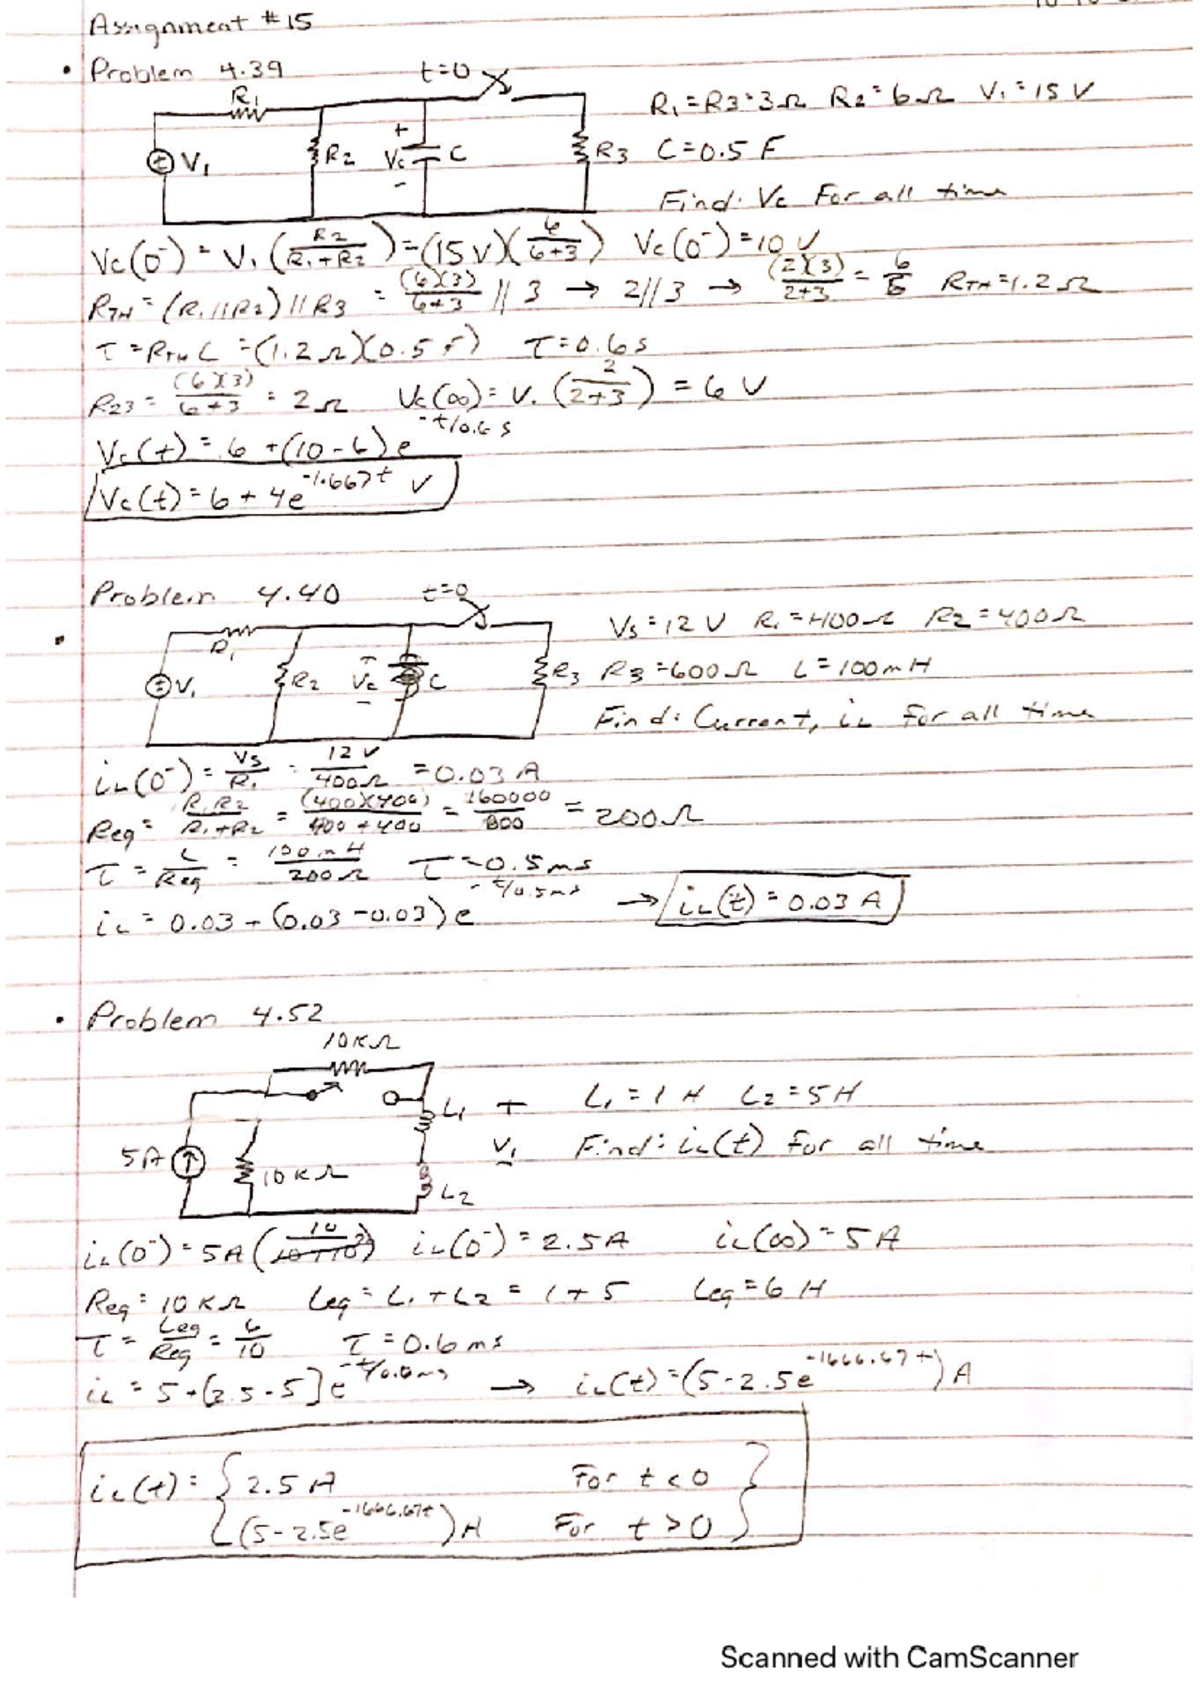 Assignment #15
• Problem 4.39
t=0
R1
V1
R2
+
Vc
-
C
R3
R1=R3=3Ω R2=6Ω V1=15 V
C=0.5 F
Find: Vc For all time
Vc(0⁻) = V1 (R2/(R1+R2)) = (15 V)(6/(6+3)) Vc(0⁻)=10 V
RTH = (R1||R2)||R3 = (6)(3)/(6+3) || 3 → 2//3 → (2)(3)/(2+3) = 6/5 RTH=1.2Ω
τ = RTH C = (1.2Ω)(0.5 F) τ=0.6s
R23 = (6)(3)/(6+3) = 2Ω Vc(∞) = V. (2/(2+3)) = 6 V
Vc(t) = 6 + (10-6)e^(-t/0.6s)
Vc(t) = 6 + 4e^(-1.667t) V
Problem 4.40
t=0
R1
V1
R2
+
Vc
-
C
R3
Vs=12 V R1=400Ω R2=400Ω
R3=600Ω L=100mH
Find: Current, iL for all time
iL(0⁻) = Vs/R1 = 12 V/400Ω = 0.03 A
Req = R1R2/(R1+R2) = (400)(400)/(400+400) = 160000/800 = 200Ω
τ = L/Req = 100mH/200Ω τ=0.5ms
iL = 0.03 + (0.03-0.03)e^(-t/0.5ms) → iL(t) = 0.03 A
• Problem 4.52
10KΩ
5A
10KΩ
L1
L2
+
V1
-
L1=1 H L2=5H
Find: iL(t) for all time
iL(0⁻) = 5A (10/(10+10)) iL(0⁻) = 2.5A iL(∞) = 5A
Req = 10KΩ Leq = L1+L2 = 1+5 Leq=6 H
τ = Leq/Req = 6/10 τ=0.6ms
iL = 5+[2.5-5]e^(-t/0.6ms) → iL(t) = (5-2.5e^(-1666.67t)) A
iL(t) = { 2.5 A For t<0 }
{ (5-2.5e^(-1666.67t)) A For t>0 }
Scanned with CamScanner